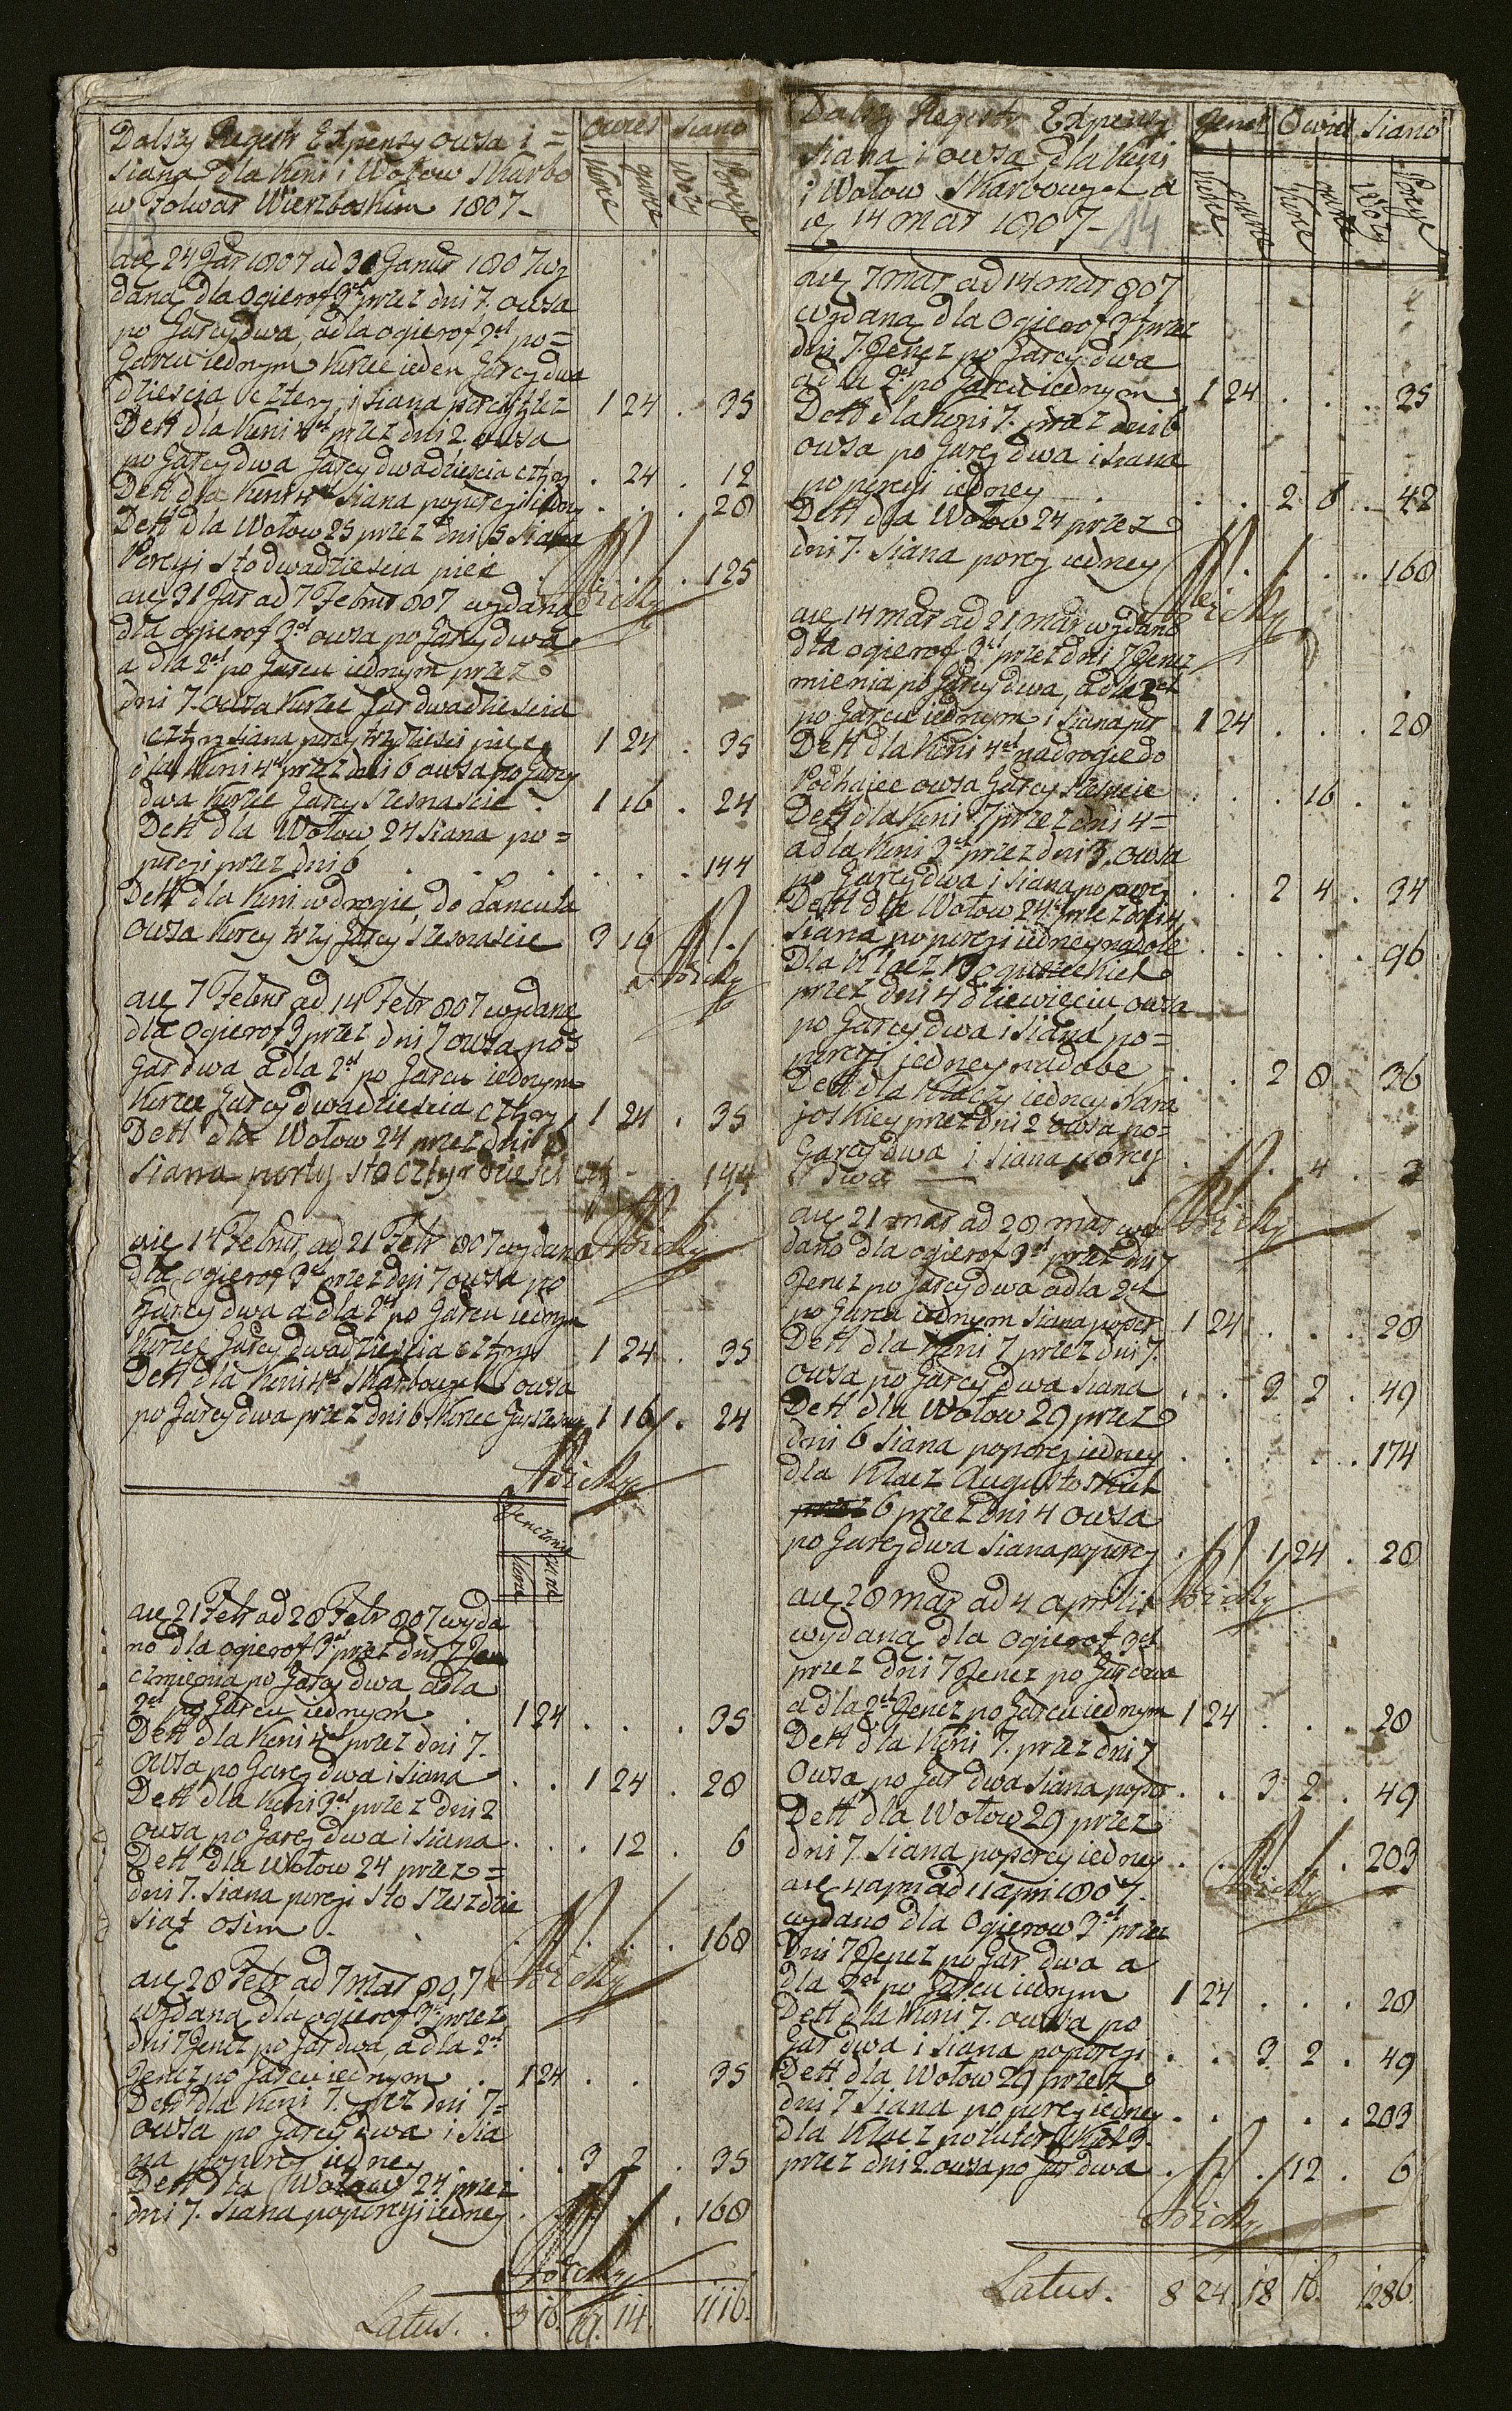 Dalszy Regestr Expensy owsa i =
Siana dla Koni i Wołow Skarbo
w Folwar Wierzboskim 1807 -
Owies Siano
Korce Garce Wozy Porcye
13
die 24 Jar 1807 ad 31 Januar 1807 wy
dano dla Ogierof 3ch przez dni 7. owsa
po Garcy dwa, a dla ogierof 2ch po =
Garcu iednym Korzec ieden Garcy dwa
dziescia cztery i siana porcyi 1 24 . 35
Dett dla Koni 4ch przez dni 2 owsa
po Garcy dwa Garcy dwadziescia cztery . 24 . 12
Dett dla Koni 4ch Siana po porcyi iedny . . . 28
Dett dla Wołow 25 przez dni 5 Siana
Porcyi sto dwadziescia pięć . . . 125
die 31 Jar ad 7 Febrar 807 wydano
dla ogierof 3ch owsa po Garcy dwa
a dla 2ch po Garcu iednym przez
dni 7 owsa Korzec Gar dwadziescia
cztery siana porcy trzydziesci pięc 1 24 . 35
dla Koni 4ch przez dni 6 owsa po Garcy
dwa Korzec Garcy szesnascie . 1 16 . 24
Dett dla Wołow 24 Siana po =
porcyi przez dni 6 . . . . 144
Dett dla Koni w drogie do Lancuta
owsa Korcy trzy Garcy szesnascie 3 16
die 7 Febrar ad 14 Febr 807 wydano
dla Ogierof 3 przez dni 7 owsa po
Gar dwa a dla 2ch po Garcu iednym
Korzec Garcy dwadziescia cztery 1 24 . 35
Dett dla Wołow 24 przez dni 6
siana porcy sto cztyrdziesci czt - 144
die 14 Febrar ad 21 Febr 807 wydano
dla ogierof 3ch przez dni 7 owsa po
Garcy dwa a dla 2ch po Garcu iednym
Korzec Garcy dwadziescia cztery 1 24 . 35
Dett dla Koni 4ch Skarbowych owsa
po Garcy dwa przez dni 6 Korzec Gar szesna 1 16 . 24
Jenczmie
Korce Garce
die 21 Febr ad 28 Febr 807 wyda
no dla ogierof 3ch przez dni 7 Jen
czmienia po Garcy dwa a dla
2ch po Garcu iednym . 1 24 . . . 35
Dett dla Koni 4ch przez dni 7.
Owsa po Garcy dwa i Siana . . 1 24 . 28
Dett dla Koni 3ch przez dni 2
owsa po Garcy dwa i Siana . . . 12 . 6
Dett dla Wołow 24 przez =
dni 7. Siana porcyi sto szescdzie
siąt osim . . . . . 168
die 28 Febr ad 7 Mar 807
wydano dla ogierof 3ch przez
dni 7 Jencz po Gar dwa, a dla 2ch
Jencz po Garcu iednym . 1 24 . . 35
Dett dla Koni 7. przez dni 7 =
owsa po Garcy dwa i Sia
na po porcy iedney . . . 3 2 . 35
Dett dla Wołow 24 przez
dni 7. Siana po porcyi iedney . . . . 168
Latus. . 3 16. 14. 1116.
Dalszy Regestr Expensy
siana i owsa dla Koni
i Wołow Skarbowych a
14 Mar 1807 -
14
Jencz Owies Siano
Korce Garce Korce Garce Wozy Porcye
die 7 Mar ad 14 Mar 807
wydano dla Ogierof 3ch przez
dni 7. Jencz po Garcy dwa
a dla 2ch po Garcu iednym 1 24 . . . 25
Dett dla Koni 7. przez dni 6
owsa po Garcy dwa i Siana
po porcyi iedney . . . 2 8 . . 42
Dett dla Wołow 24 przez
dni 7. Siana porcy iedney . . . 168
die 14 Mar ad 21 Mar wydano
dla ogierof 3ch przez dni 7 Jencz
mienia po Garcy dwa, a dla 2ch
po Garcu iednym i siana por 1 24 . . . 28
Dett dla Koni 4ch na drogie do
Podhajec owsa Garcy szesnascie . . . 16 . .
Dett dla Koni 7 przez dni 4 =
a dla Koni 3ch przez dni 3. owsa
po Garcy dwa i siana po porcy . . 2 4 . 34
Dett dla Wołow 24ch przez dni 4
Siana po porcyi iedney na dobe . . . . . 96
Dla Klacz
przez dni 4 dziewięciu owsa
po Garcy dwa i Siana po =
porcyi iedney na dobe . . 2 8 . 36
Dett dla Klaczy iedney Kara
joskiey przez dni 2 owsa po =
Garcy dwa i Siana porcy
dwa . . . 4 . 2
die 21 Mar ad 28 Mar wy
dano dla ogierof 3ch przez dni 7
Jencz po Garcy dwa a dla 2ch
po Garcu iednym Siana po por 1 24 . . . 28
Dett dla Koni 7 przez dni 7.
owsa po Garcy dwa Siana . . 3 2 . 49
Dett dla Wołow 29 przez
dni 6 Siana po porcy iedney . . . . . 174
dla Klacz Augustoskich
6 przez dni 4 owsa
po Garcy dwa Siana po porcy . . 1 24 . 28
die 28 Mar ad 4 Aprilis
wydano dla Ogierof 3ch
przez dni 7 Jencz po Gar dwa
a dla 2ch Jencz po Garcu iednym 1 24 . . . 28
Dett dla Koni 7. przez dni 7
Owsa po Gar dwa Siana po por . . 3 2 . 49
Dett dla Wołow 29 przez
dni 7. Siana po porcy iedney . . . . 203
die 4 Apri ad 11 Apri 1807.
wydano dla Ogierow 3ch przez
dni 7 Jencz po Gar. dwa a
dla 2ch po Garcu iednym 1 24 . . . 28
Dett dla Koni 7. owsa po
Gar dwa i Siana po porcyi . . 3 2 . 49
Dett dla Wołow 29 przez
dni 7 Siana po porcy iedney . . . . . 203
dla Klacz 3
przez dni 2. owsa po Gar dwa . . . 12 . 6
Latus. 8 24 18 16. 1286.